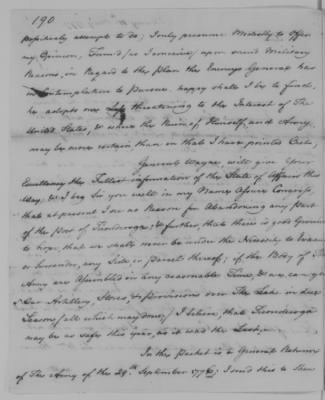 190
positively attempt to do; I only presume Modestly to Offer
my Opinion, Form'd (as I conceive) upon sound Military
Reasons, in Regard to the Plan the Enemys General has
in Contemplation to Pursue. happy shall I be to find,
he adopts one less threatening to the Interest of The
United States, & where the Ruin of Himself, and Army,
may be more certain than in that I have pointed Out.
General Wayne will give your
Excellency the Fullest information of the State of Affairs this
Way; & I beg Sir you will in my Name Assure Congress,
that at present I see no Reason for Abandoning any part
of the post of Ticonderoga; & further, that there is good Ground
to hope, that we shall never be under the Necessity to Evacuate
or Surrender, any Side, or part thereof; if the Body of The
Army are Assembled in any reasonable Time, & we can get
Our Artillery, Stores, & Provisions over The Lake in due
Season (all which may done) I believe, that Ticonderoga
may be as safe this Year, as it was the Last.
In this Packet is a General Return
of The Army of the 29th. September 1776; I send this to Shew